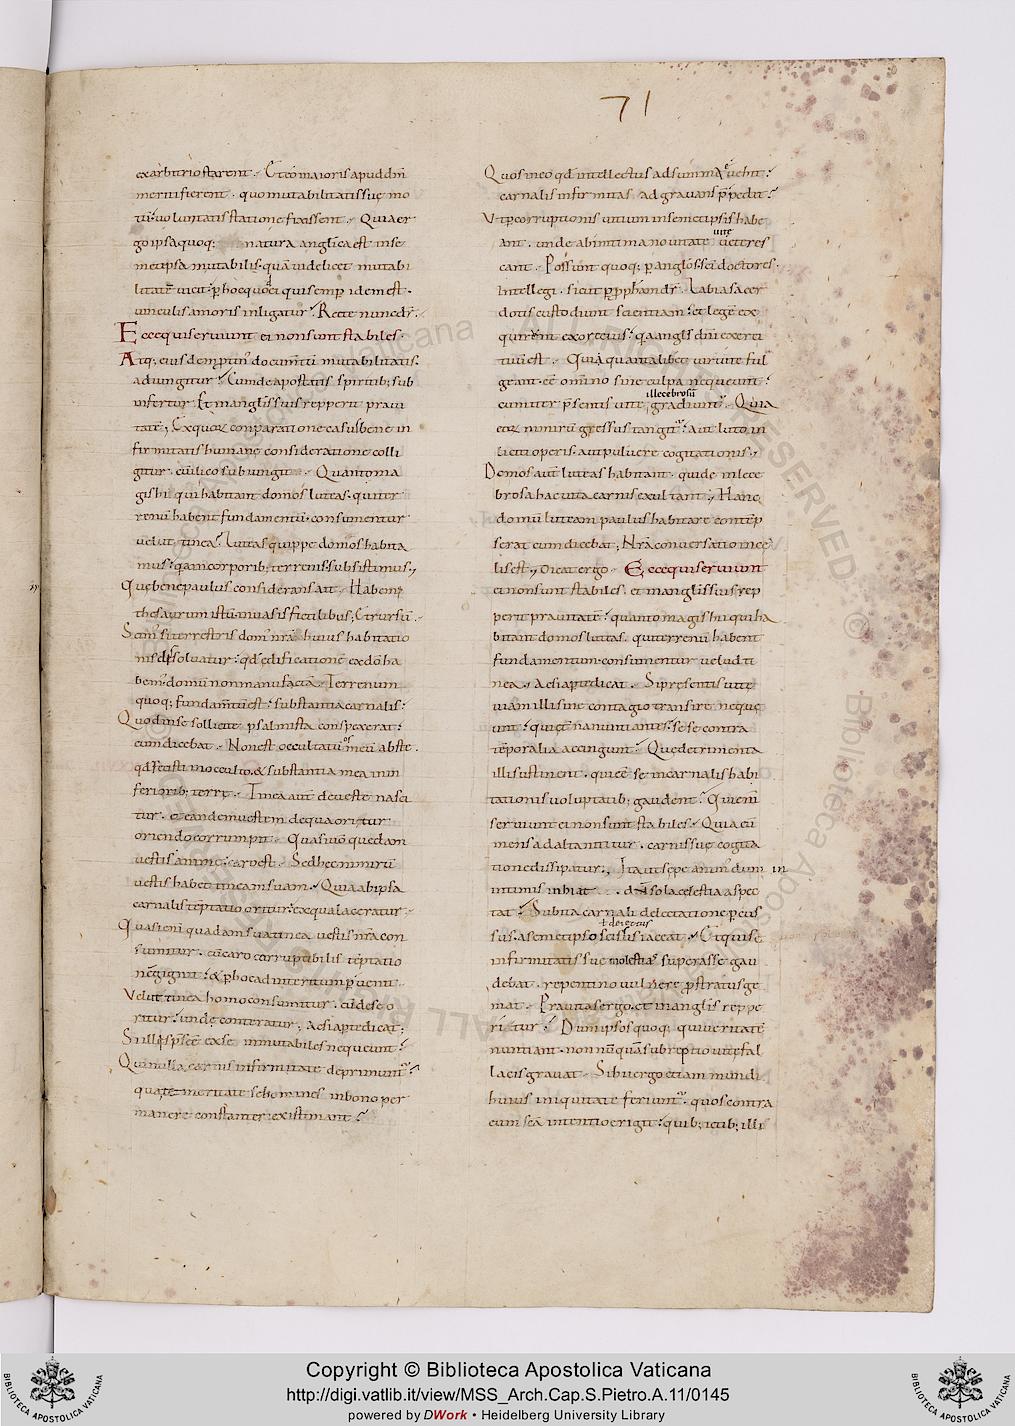 71
ex arbitrio starent. Et eo maioris apud dm̄
meriti fierent. quo mutabilitatis suę mo
tui uoluntatis statione fixissent. Quia er
go ipsa quoq; natura anglica est in se
metipsa mutabilis. quā uidelicet mutabi
litatē uicit. p̄ hoc
uinculis amoris inligatur. Recte nunc dr̄.
Ecce qui seruiunt ei non sunt stabiles.
Atq; eius documtū mutabilitatis.
adiungitur. Cum de apostatis spiritib; sub
infertur. Et in anglis suis repperit praui
tatē; Ex quorum conparatione casus bene in
firmitatis humanę considerationē colli
gitur. cū ilico subiungit. Quanto ma
gis hi qui habitant domos luteas. qui ter
renū habent fundamentū. consumentur
uelut tinea. Luteas quippe domos habita
mus. qa in corporib; terrenis subsistimus.
Quę bene paulus considerans ait. Habemus
thesaurum istū in uasis fictilibus; Et rursū.
Scim̄ si terrestris dom̄ nrā huius habitatio
nis dissoluatur. qd̄ ędificationē ex dō ha
bem̄. domū non manufactā. Terrenum
quoq; fundamtū est. substantia carnalis.
Quod in se sollicite psalmista conspexerat.
cum dicebat. Non est occultatū os meū abs te.
qd̄ fecisti in occulto. & substantia mea in in
ferioribꝫ terrę. Tinea autē de ueste nasci
tur. & eandem uestem de qua oritur
oriendo corrumpit. Quasi uō quędam
uestis animę. caro est. Sed hęc nimirū
uestis habet tineam suam. Quia ab ipsa
carnalis tēptatio oritur. ex qua laceratur.
Quasi enī quadam sua tinea uestis nrā con
sumitur. cū caro corruptibilis tēptatio
nē gignit. & p̄ hoc ad interitum puenit.
Velut tinea homo consumitur. cū de se o
ritur. unde conteratur; Ac si apte dicat;
Si illi sps̄ esse ex se inmutabiles nequeunt.
Qui nulla carnis infirmitate deprimunt̄.
qua temeritate se homines in bono per
manere constanter existimant.
Quos in eo qd̄ intellectus ad summa euehit.
carnalis infirmitas adgrauans p̄pedit.
Vt p̄ corruptionis uitium in semetipsis habe
ant. unde ab intima nouitate uitę ueteres
cant. Possunt quoq; p̄ angłos sc̄i doctores
intellegi. sicut p̄ pphām dr̄. Labia sacer
dotis custodiunt scientiam. et legē ex
quirent ex ore eius. qa angłs dn̄i exerci
tuū est. Qui quantalibet uirtute ful
geant. eē omnino sine culpa nequeunt.
cum iter p̄sentis uitę illecebrosū gradiunt̄. Quia
eorum nimirū gressus tangit̄. aut luto in
liciti operis. aut puluere cogitationis.
Domos autē luteas habitant. qui de inlece
brosa hac uita carnis exultant. Hanc
domū luteam paulus habitare contēp
serat cum dicebat; Nrā conuersatio in cę
lis est. Dicat ergo. Ecce qui seruiunt
ei non sunt stabiles. et in angłis suis rep
perit prauitatē. quanto magis hi qui ha
bitant domos luteas. qui terrenū habent
fundamentum. consumentur uelud ti
nea. Ac si apte dicat. Si pręsentis uitę
uiam illi sine contagio transire neque
unt. qui ętna nuntiantes. se se contra
tēporalia accingunt. Quę detrimenta
illi sustinent. qui eē se in carnalis habi
tationis uoluptatib; gaudent. Qui enī
seruiunt ei non sunt stabiles. Quia cū
mens ad alta nititur. carnis suę cogita
tione dissipatur. Ita ut sępe animus dum in
intimis inhiat. dū sola cęlestia aspec
tat. subita carnali delectatione percus
sus. a semetipso scissus iaceat. Et qui se
infirmitatis suę molestia superasse gau
debat. repentino uulnere prostratus ge
mat. Prauitas ergo et in angłis reppe
ritur. Dum ipsos quoq; qui ueritatē
nuntiant. non nūquā subreptio uitę fal
lacis grauat. Si hi uergo etiam mundi
huius iniquitate feriunt̄. quos contra
eum sc̄a intentio erigit. quib; ictib; illi
Copyright © Biblioteca Apostolica Vaticana
http://digi.vatlib.it/view/MSS_Arch.Cap.S.Pietro.A.11/0145
powered by DWork • Heidelberg University Library